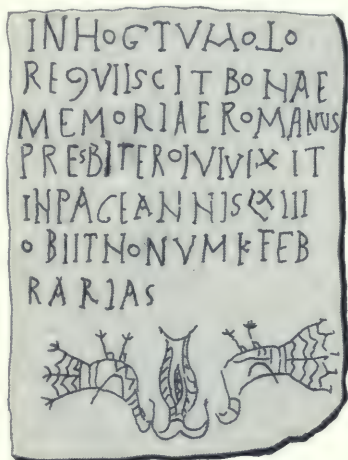 INHOCTVMOLO
REQVIISCIT BONAE
MEMORIAE ROMANVS
PRESBITEROIVIVIXIT
INPACEANNISLXIII
OBIITNONVMKFEB
RARIAS